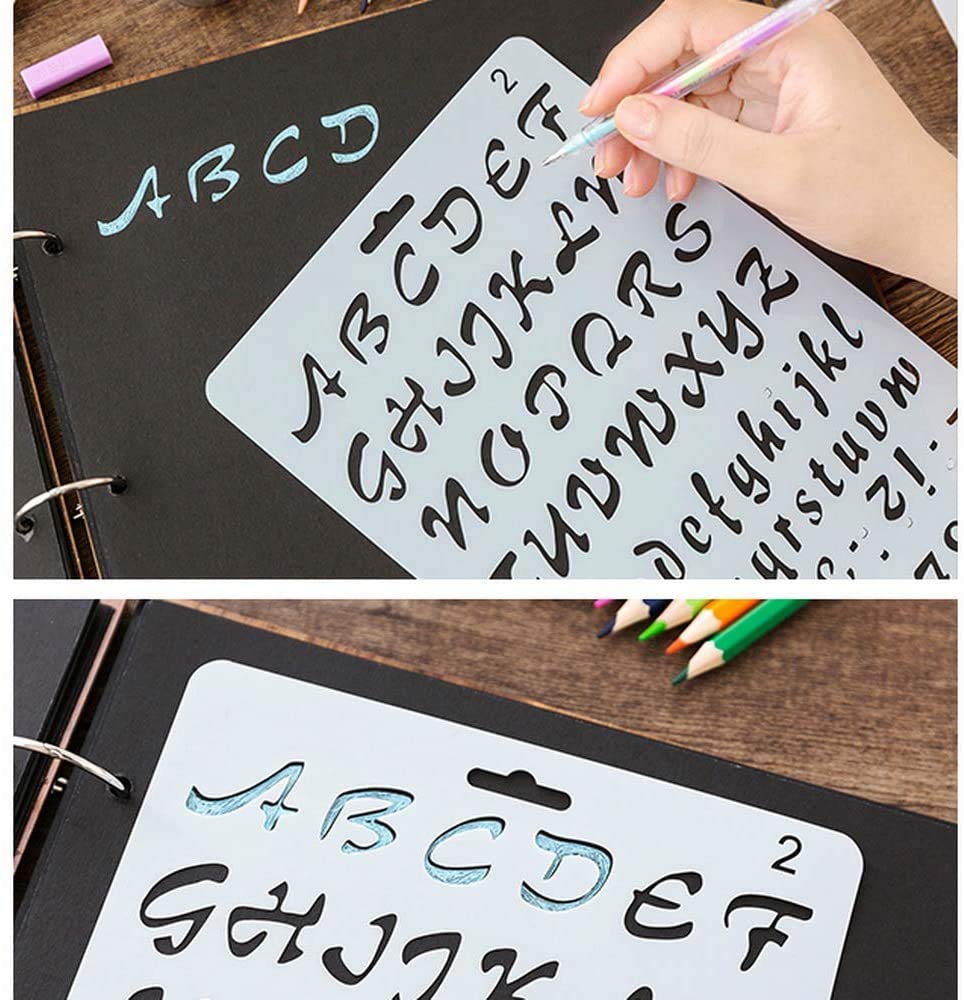 A B C D
2
A B C D E F
G H I J K L M
N O P Q R S
T U V W X Y Z
c f g h i j k l
q r s t u v w
z ! .
A B C D E F
2
G H I J K